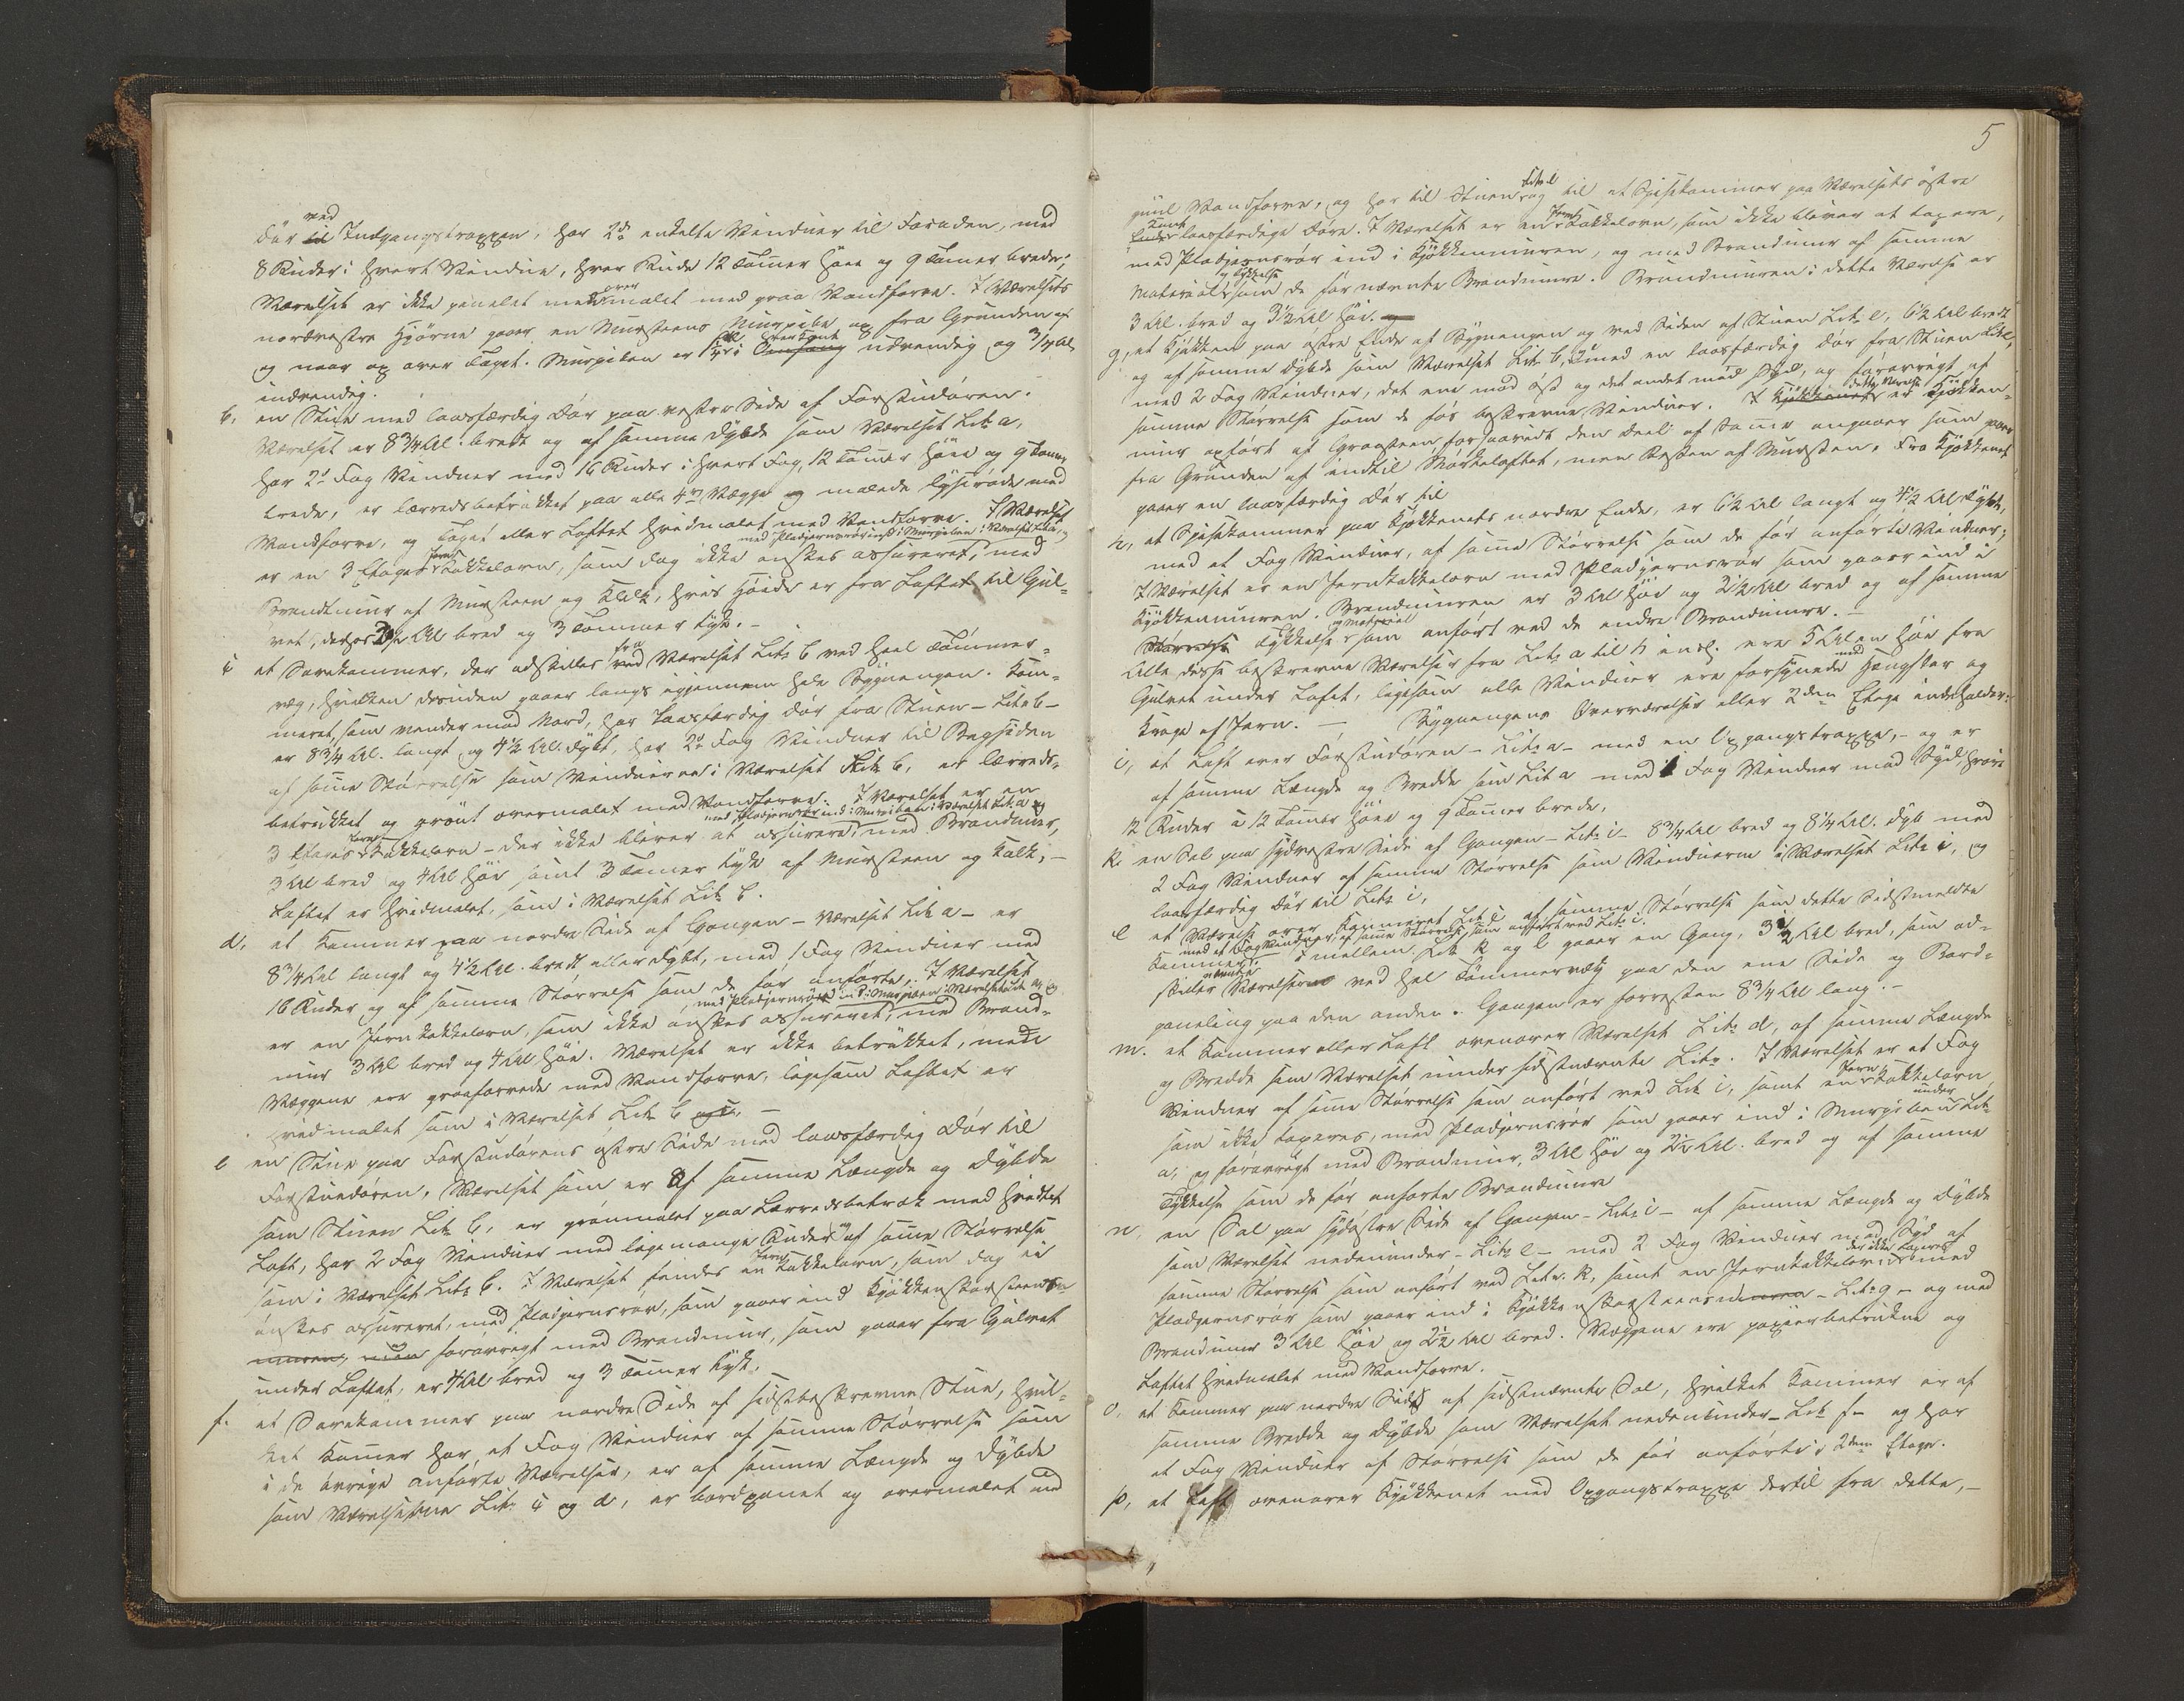 ved
Dør til Indgangstrappen, har 2de enkelte Vinduer til Facaden, med
8 Ruder i hvert Vindue, hver Rude 12 Tommer høie og 9 Tommer brede;
over
Værelset er ikke panelet men malet med graa Vandfarve. I Værelsets
nordvestre Hjørne gaaer en Mursteens Murpibe op fra Grunden af
og naar op over Taget. Murpiben er i Omfang udvendig og 3/4 Al
indvendig.
b, en Stue med laasfærdig Dør paa vestre Side af Forstuedøren.
Værelset er 8 3/4 Al. bredt og af samme Dybde som Værelset Litr a,
har 2de Fag Vinduer med 16 Ruder i hvert Fag, 12 Tommer høie og 9 Tommer
brede, er lærredsbetrukket paa alle 4re Vægge og malede lyserøde med
Vandfarve, og Taget eller Loftet hvidmalet med Vandfarve. I Værelset
med Pladejernsrør ind i Murpiben i Værelset Litr a, og
Jern
er en 3 Etages Kakkelovn, som dog ikke ønskes assureret, med
Brandmuur af Muursteen og Kalk, hvis Høide er fra Loftet til Gul-
vet, derhos 2 1/2 Al bred og 3 Tommer tyk. -
c et Sovekammer, der adskilles fra Værelset Litr b ved heel Tømmer-
væg, hvilken desuden gaaer langs igjennem hele Bygningen. Kam-
meret, som vender mod Nord, har laasfærdig Dør fra Stuen - Litr b -
er 8 3/4 Al. langt og 4 1/2 Al. dybt, har 2de Fag Vinduer til Bagsiden
af samme Størrelse som Vinduerne i Værelset Litr b, er lærreds-
betrukket og grønt overmalet med Vandfarve. I Værelset er en
med Pladejernsrør ind i Murpiben i Værelset Litr a og
Jern
3 Etages Kakkelovn - der ikke bliver at assurere, med Brandmuur,
3 Al bred og 4 Al høi samt 3 Tommer tyk af Muursteen og Kalk, -
Loftet er hvidmalet, som i Værelset Litr b.
d, et Kammer paa nordre Side af Gangen - Værelset Litr a - er
8 3/4 Al langt og 4 1/2 Al. bredt eller dybt, med 1 Fag Vinduer med
16 Ruder og af samme Størrelse som de før anførte, I Værelset
med Pladejernsrør ind i Murpiben i Værelset Litr a og
er en Jernkakkelovn, som ikke ønskes assureret, med Brand-
muur 3 Al bred og 4 Al høi. Værelset er ikke betrukket, men
Væggene ere graafarvede med Vandfarve, ligesom Loftet er
hvidmalet som i Værelset Litr b og c, -
e en Stue paa Forstuedørens østre Side med laasfærdig Dør til
Forstuedøren, Værelset som er af samme Længde og Dybde
som Stuen Litr b, er grønmalet paa Lærredsbetræk med hvidtet
Loft, har 2 Fag Vinduer med ligemange Ruder af samme Størrelse
Jern
som i Værelset Litr b. I Værelset findes en Kakkelovn, som dog ei
ønskes assureret, med Pladejernsrør, som gaaer ind i Kjøkkenskorsteens
muren, forøvrigt med Brandmuur, som gaaer fra Gulvet
under Loftet, er 4 Al bred og 3 Tommer tyk.
f. et Sovekammer paa nordre Side af sidstbeskrevne Stue, hvil-
ket Kammer har et Fag Vinduer af samme Størrelse som
i de øvrige anførte Værelser, er af samme Længde og Dybde
som Værelserne Litr c og d, er bordpanet og overmalet med
5
Litr e
guul Vandfarve, og har til Stuen og til et Spisekammer paa Værelsets østre
Kant
Jern
Ende laasfærdige Døre. I Værelset er en Kakkelovn, som ikke bliver at taxere,
med Pladejernsrør ind i Kjøkkenmuren, og med Brandmuur af samme
og Tykkelse
Material som de før nævnte Brandmure. Brandmuren i dette Værelse er
3 Al. bred og 3 1/2 Al høi.
g, et Kjøkken paa østre Ende af Bygningen og ved Siden af Stuen Litr e, 6 1/2 Al bredt
og af samme Dybde som Værelset Litr b, med en laasfærdig Dør fra Stuen Litr e,
med 2 Fag Vinduer, det ene mod Øst og det andet mod Syd, og forøvrigt af
samme Størrelse som de før beskrevne Vinduer. I Kjøkkenet er Kjøkken-
dette Værelse
muur opført af Graasteen forsaavidt den Deel af samme angaaer som gaaer
fra Grunden af indtil Mørkeloftet, men Resten af Mursten. Fra Kjøkkenet
gaaer en laasfærdig Dør til
h, et Spisekammer paa Kjøkkenets nordre Ende, er 6 1/2 Al langt og 4 1/2 Al dybt,
med et Fag Vinduer, af samme Størrelse som de før anførte Vinduer;
I Værelset er en Jernkakkelovn med Pladejernsrør som gaaer ind i
Kjøkkenmuren. Brandmuren er 3 Al høi og 2 1/2 Al bred og af samme
og Material
Størrelse Tykkelse som anført ved de andre Brandmure. -
Alle disse beskrevne Værelser fra Litr a til h incl. ere 5 Alen høie fra
Gulvet under Loftet, ligesom alle Vinduer ere forsynede med Hængsler og
Kroge af Jern. - Bygningens Overværelser eller 2den Etage indeholder:
i, et Loft over Forstuedøren - Litr a - med en Opgangstrappe, - og er
af samme Længde og Bredde som Litr a med 1 Fag Vinduer mod Syd, hvori
12 Ruder à 12 Tommer høie og 9 Tommer brede,
k. en Sal paa sydvestre Side af Gangen - Litr i - 8 3/4 Al bred og 8 1/4 Al. dyb med
2 Fag Vinduer af samme Størrelse som Vinduerne i Værelset Litr i, og
laasfærdig Dør til Litr i,
l et Værelse over Kammeret Litr c af samme Størrelse som dette Sidstmeldte
med et Fag Vinduer, af samme Størrelse som anført ved Litr i.
Kammer. Imellem Litr k og l gaaer en Gang, 3 1/2 Al bred, som ad-
nævnte
skiller Værelserne ved heel Tømmervæg paa den ene Side og Bord-
paneling paa den anden. Gangen er forresten 8 3/4 Al lang. -
m. et Kammer eller Loft ovenover Værelset Litr d, af samme Længde
og Bredde som Værelset under sidstnævnte Litr. I Værelset er et Fag
Jern
Vinduer af samme Størrelse som anført ved Litr i, samt en Kakkelovn
under
som ikke taxeres, med Pladejernsrør som gaaer ind i Murpiben Litr
a, og forøvrigt med Brandmuur, 3 Al høi og 2 1/2 Al. bred og af samme
Tykkelse som de før anførte Brandmure
n, en Sal paa sydøstre Side af Gangen - Litr i - af samme Længde og Dybde
som Værelset nedenunder - Litr e - med 2 Fag Vinduer mod Syd af
der ikke taxeres
samme Størrelse som anført ved Litr. k, samt en Jernkakkelovn med
Pladejernsrør som gaaer ind i Kjøkkenskorsteensmuren - Litr g - og med
Brandmuur 3 Al høi og 2 1/2 Al bred. Væggene ere papiirbetrukne og
Loftet hvidmalet med Vandfarve.
o, et Kammer paa nordre Side af sidstnævnte Sal, hvilket Kammer er af
samme Bredde og Dybde som Værelset nedenunder - Litr f - og har
et Fag Vinduer af Størrelse som de før anførte i 2den Etage.
p, et Loft ovenover Kjøkkenet med Opgangstrappe dertil fra dette, -